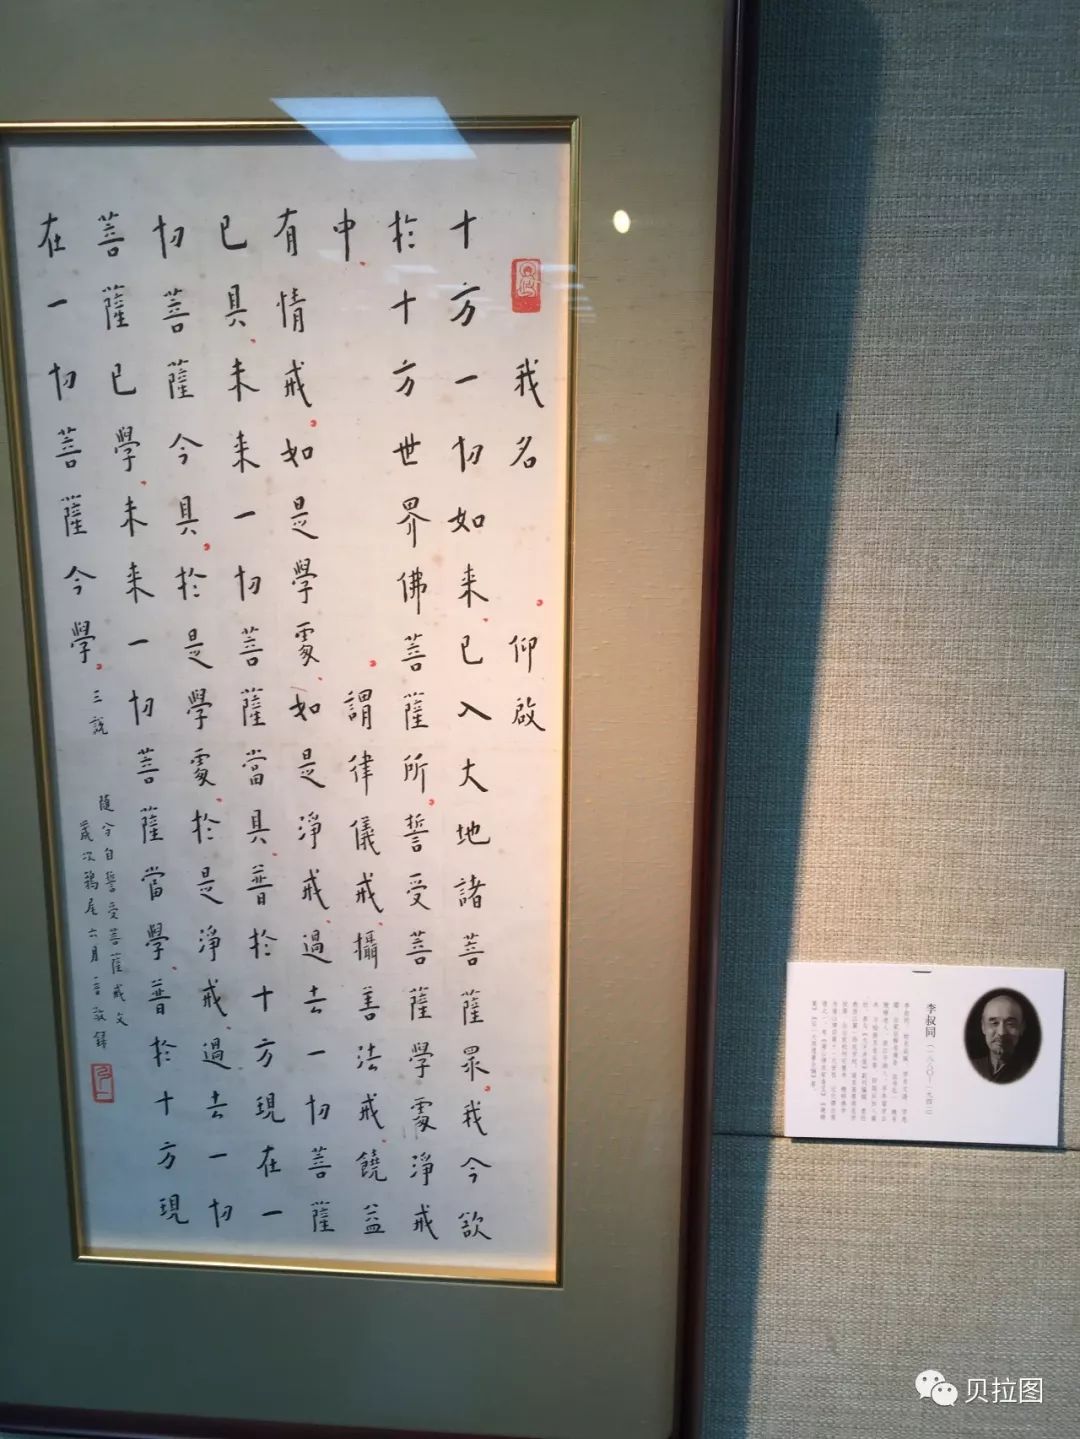 我名 仰啟
十方一切如来已入大地諸菩薩眾我今欲
於十方世界佛菩薩所誓受菩薩學處淨戒
中 謂律儀戒攝善法戒饒益
有情戒如是學處如是淨戒過去一切菩薩
已具未来一切菩薩當具普於十方現在一
切菩薩今具於是學處於是淨戒過去一切
菩薩已學未来一切菩薩當學普於十方現
在一切菩薩今學 三説
隨分自誓受菩薩戒文
歲次鶉尾六月一音敬錄
李叔同（一八八〇—一九四二）
贝拉图